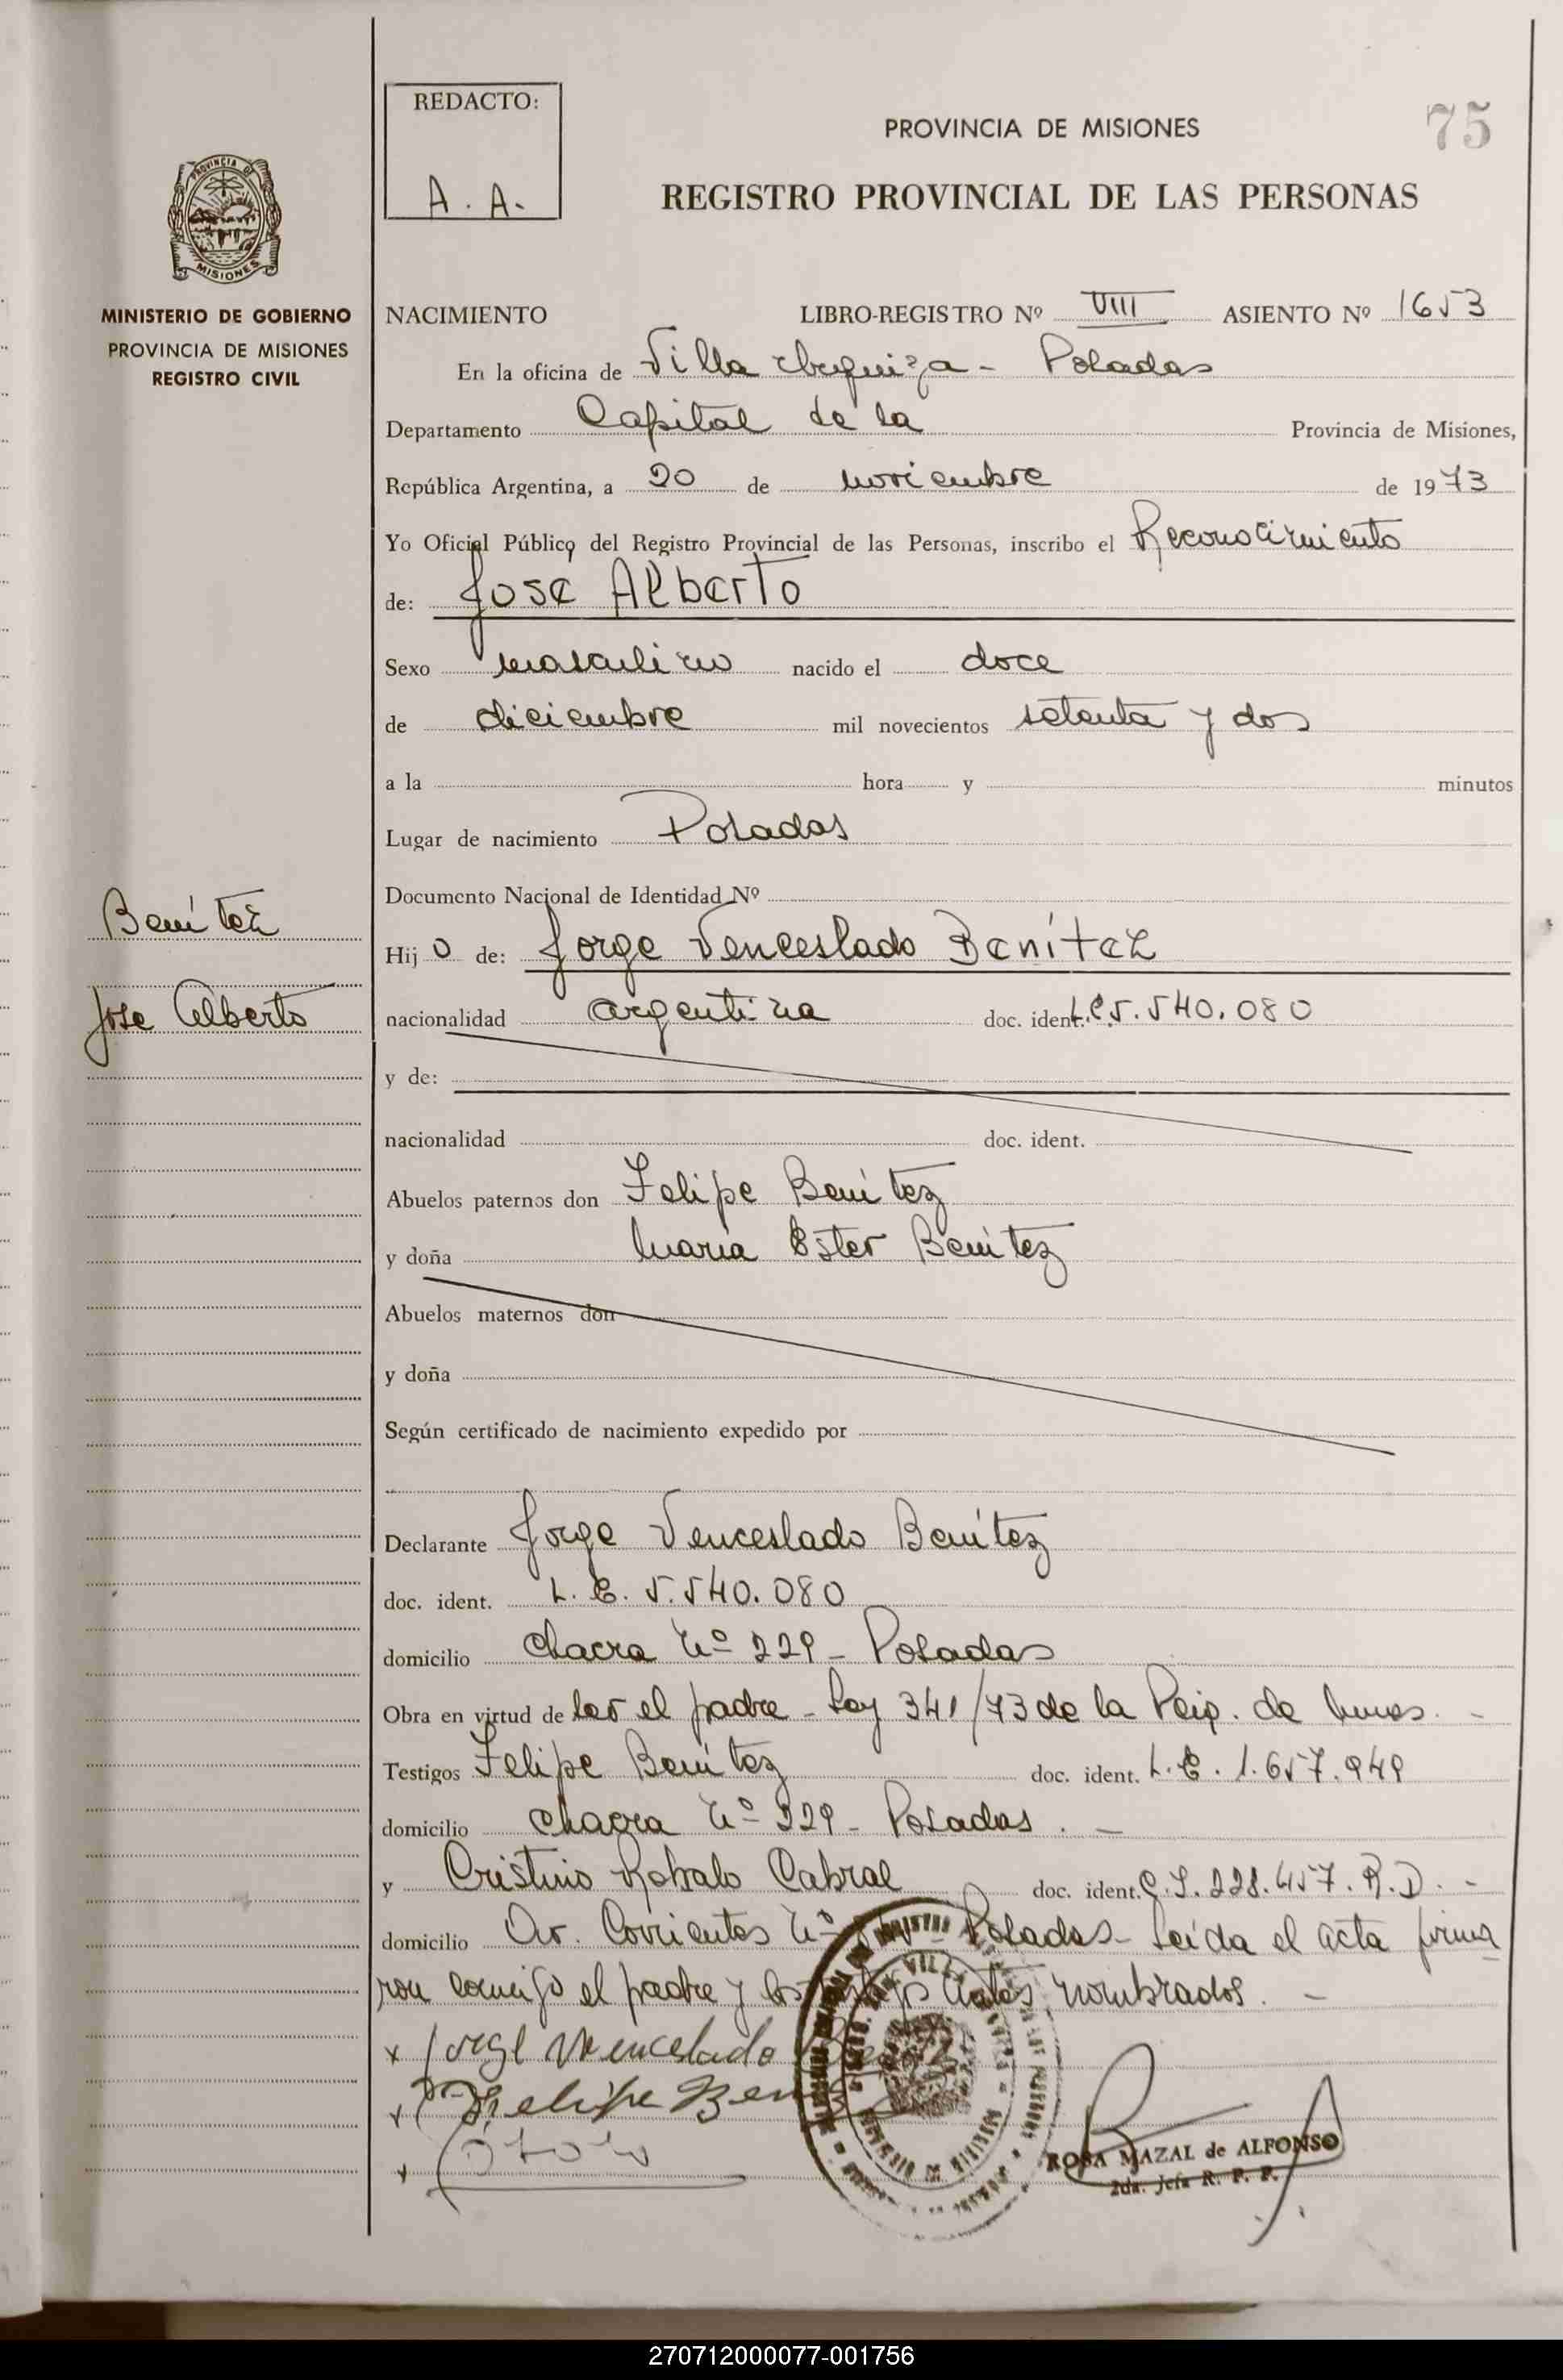 REDACTO:
A. A.
PROVINCIA DE MISIONES
75
REGISTRO PROVINCIAL DE LAS PERSONAS
PROVINCIA DE
MISIONES
MINISTERIO DE GOBIERNO
PROVINCIA DE MISIONES
REGISTRO CIVIL
NACIMIENTO LIBRO-REGISTRO Nº VIII ASIENTO Nº 1653
En la oficina de Villa Urquiza - Posadas
Departamento Capital de la Provincia de Misiones,
República Argentina, a 20 de noviembre de 1973
Yo Oficial Público del Registro Provincial de las Personas, inscribo el Reconocimiento
de: José Alberto
Sexo masculino nacido el doce
de diciembre mil novecientos setenta y dos
a la hora y minutos
Lugar de nacimiento Posadas
Documento Nacional de Identidad Nº
Benítez
Hijo de: Jorge Venceslado Benítez
José Alberto
nacionalidad argentina doc. ident. L.E. 5.540.080
y de:
nacionalidad doc. ident.
Abuelos paternos don Felipe Benítez
y doña María Ester Benítez
Abuelos maternos don
y doña
Según certificado de nacimiento expedido por
Declarante Jorge Venceslado Benítez
doc. ident. L. E. 5.540.080
domicilio Chacra Nº 229 - Posadas
Obra en virtud de ser el padre - Ley 341/73 de la Pcia. de Mnes. -
Testigos Felipe Benítez doc. ident. L. E. 1.657.949
domicilio Chacra Nº 229 - Posadas. -
y Cabral doc. ident. C. I. 228.457. R.D. -
domicilio Av. Corrientes Nº Posadas - Leída el acta firma
ron conmigo el padre y los testigos antes nombrados. -
x Jorge Venceslado
x Felipe Benítez
x
ROSA MAZAL de ALFONSO
2da. Jefa R. P. P.
270712000077-001756